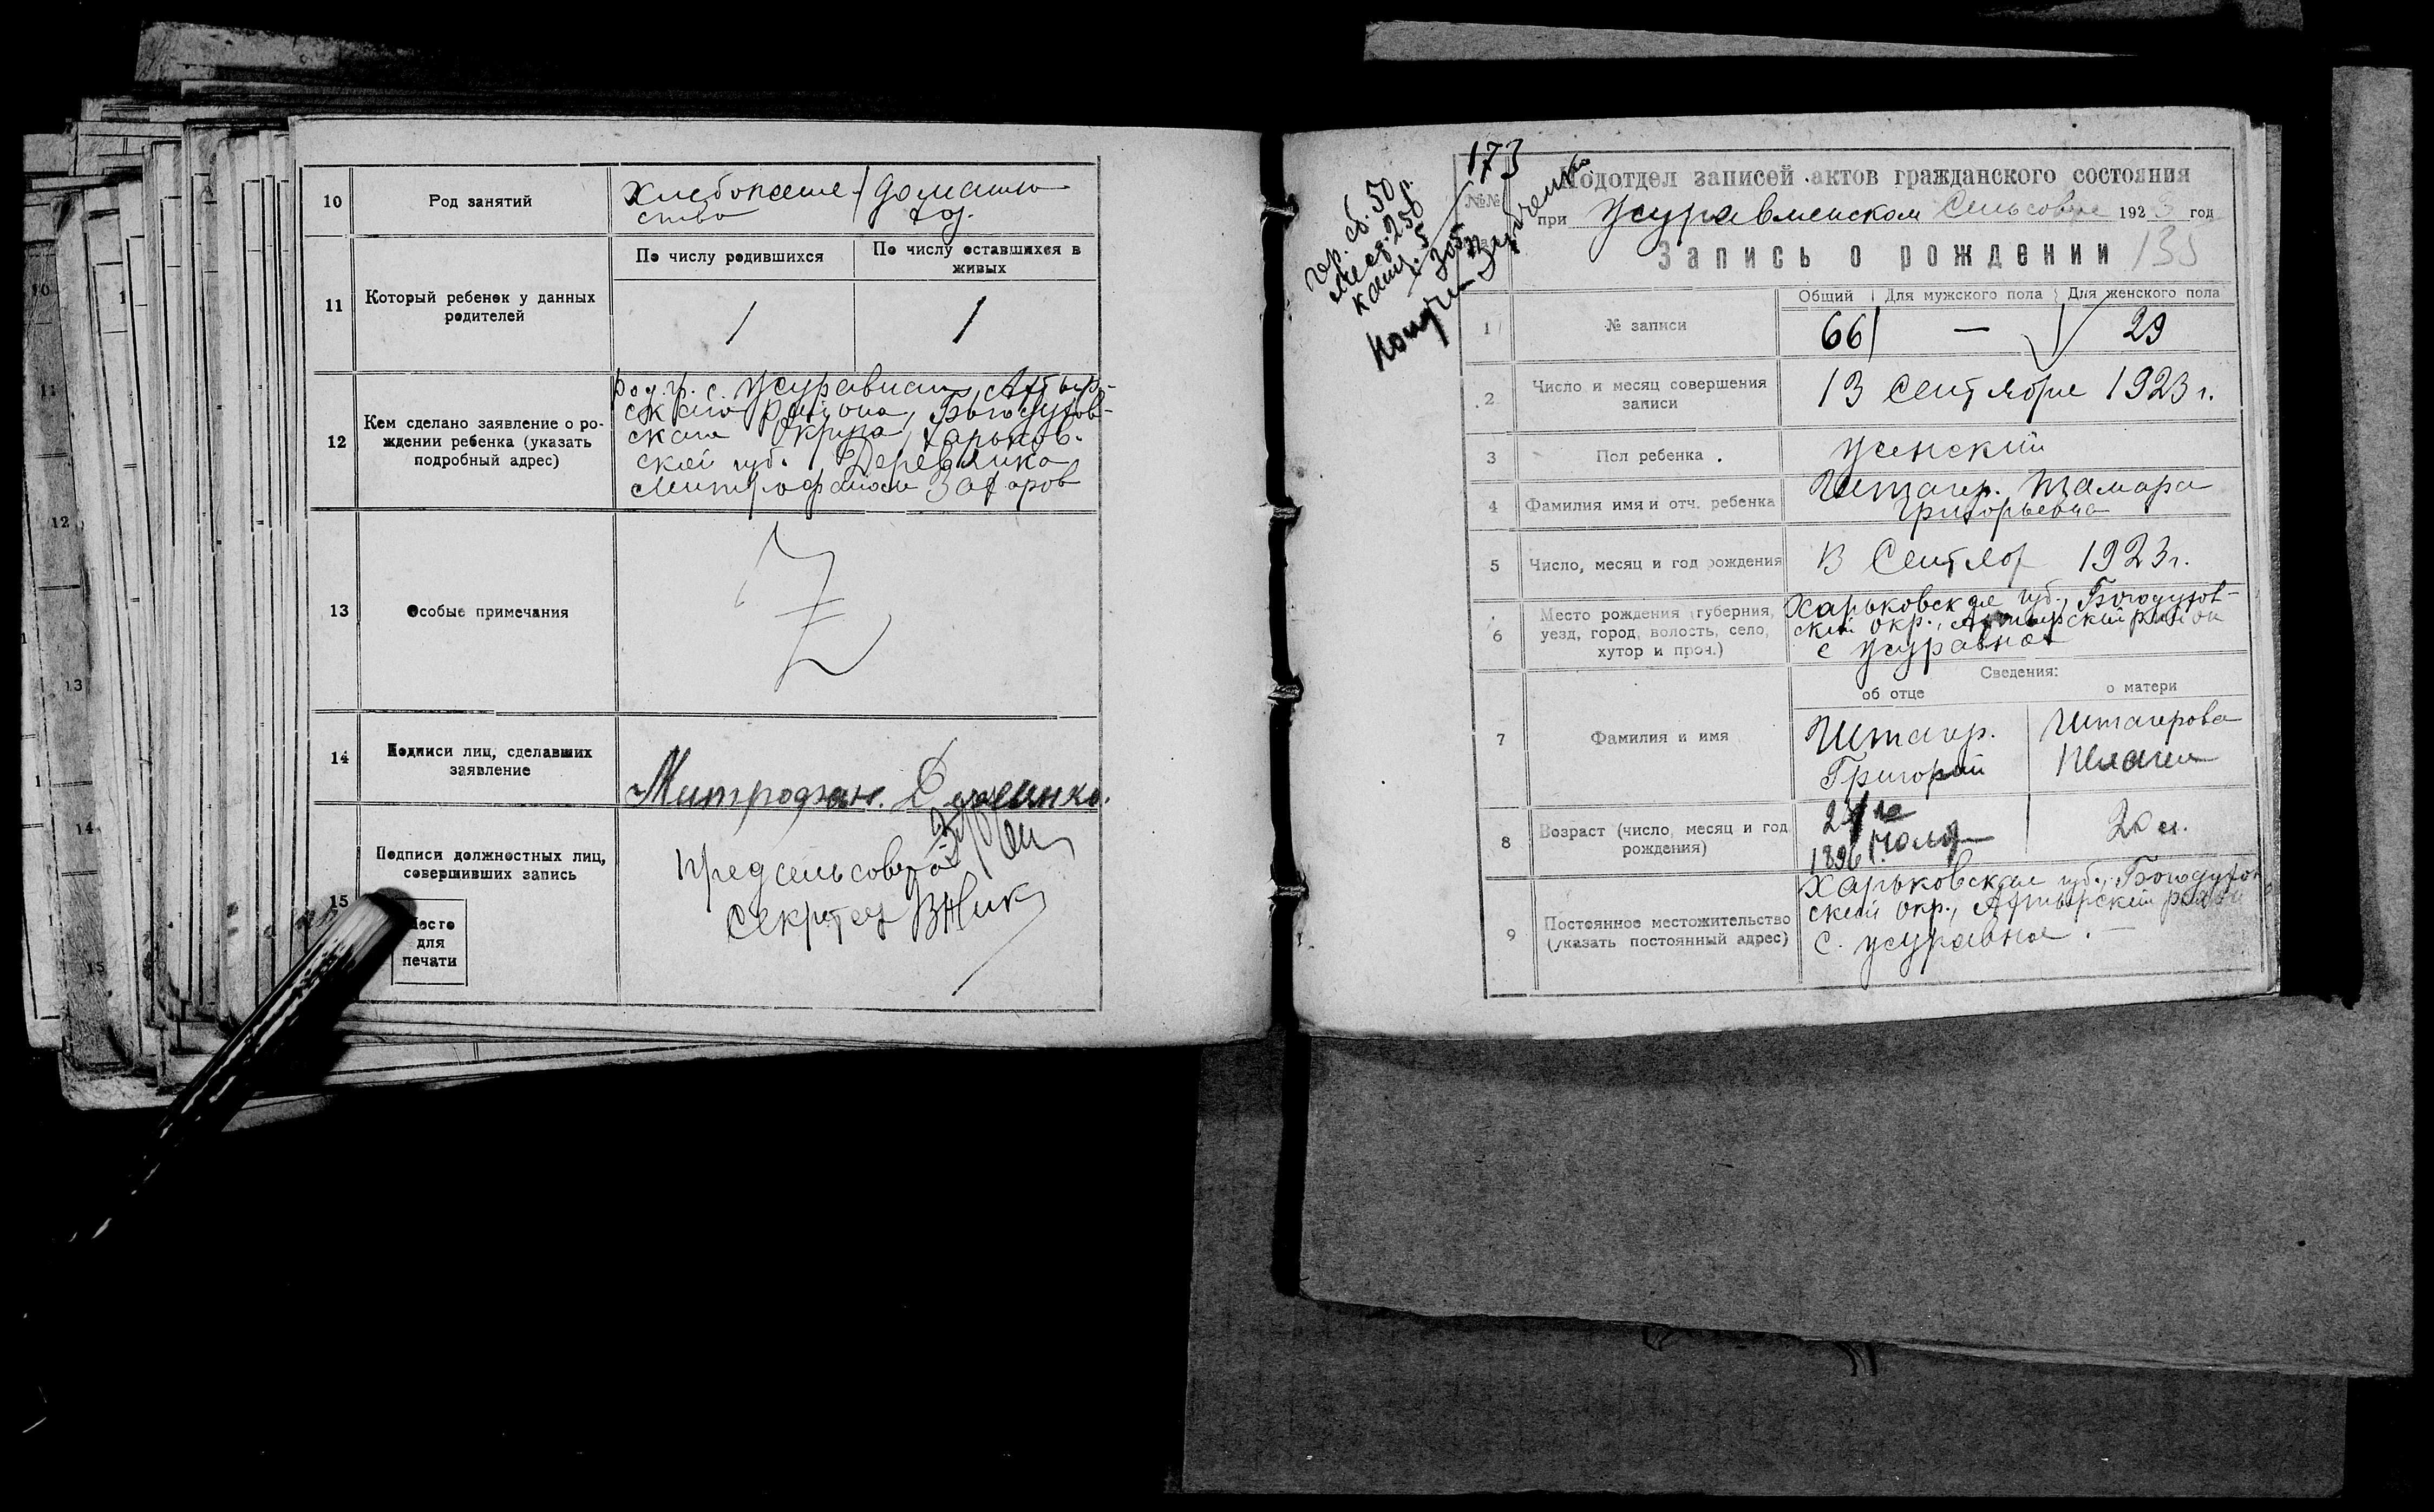 10
Род занятий
Хлебопаше-
ство
домашн
хоз.
11
Который ребенок у данных
родителей
По числу родившихся
По числу оставшихся в
живых
1
1
12
Кем сделано заявление о ро-
ждении ребенка (указать
подробный адрес)
с. Журавное, Ахтыр-
скаго района, Богодухов-
скаго Округа, Харьков-
ской губ. Деревянко
Митрофаном Захаров
13
Особые примечания
Z
14
Подписи лиц, сделавших
заявление
Митрофан.
15
Подписи должностных лиц,
совершивших запись
Место
для
печати
Предсельсовета
Секретарь
173
№№
Подотдел записей актов гражданского состояния
при Журавленском Сельсовете 1923 год
Запись о рождении 135
гор. сб. 50 р.
250
канц. 5
305
1
№ записи
Общий
Для мужского пола
Для женского пола
66
—
29
2
Число и месяц совершения
записи
13 Сентября 1923 г.
3
Пол ребенка .
женский
4
Фамилия имя и отч. ребенка
Штагер. Тамара
Григорьевна
5
Число, месяц и год рождения
13 Сентяб 1923 г.
6
Место рождения (губерния,
уезд, город, волость, село,
хутор и проч.)
Харьковская губ., Богодухов-
ский окр., Ахтырский район
с Журавное
Сведения:
об отце
о матери
7
Фамилия и имя
Штагер.
Григорий
Штагерова
Пелагея
8
Возраст (число, месяц и год
рождения)
1896 г.
Июля
20 л.
9
Постоянное местожительство
(указать постоянный адрес)
Харьковская губ., Богодухов
ский окр., Ахтырский район
с. Журавное. —